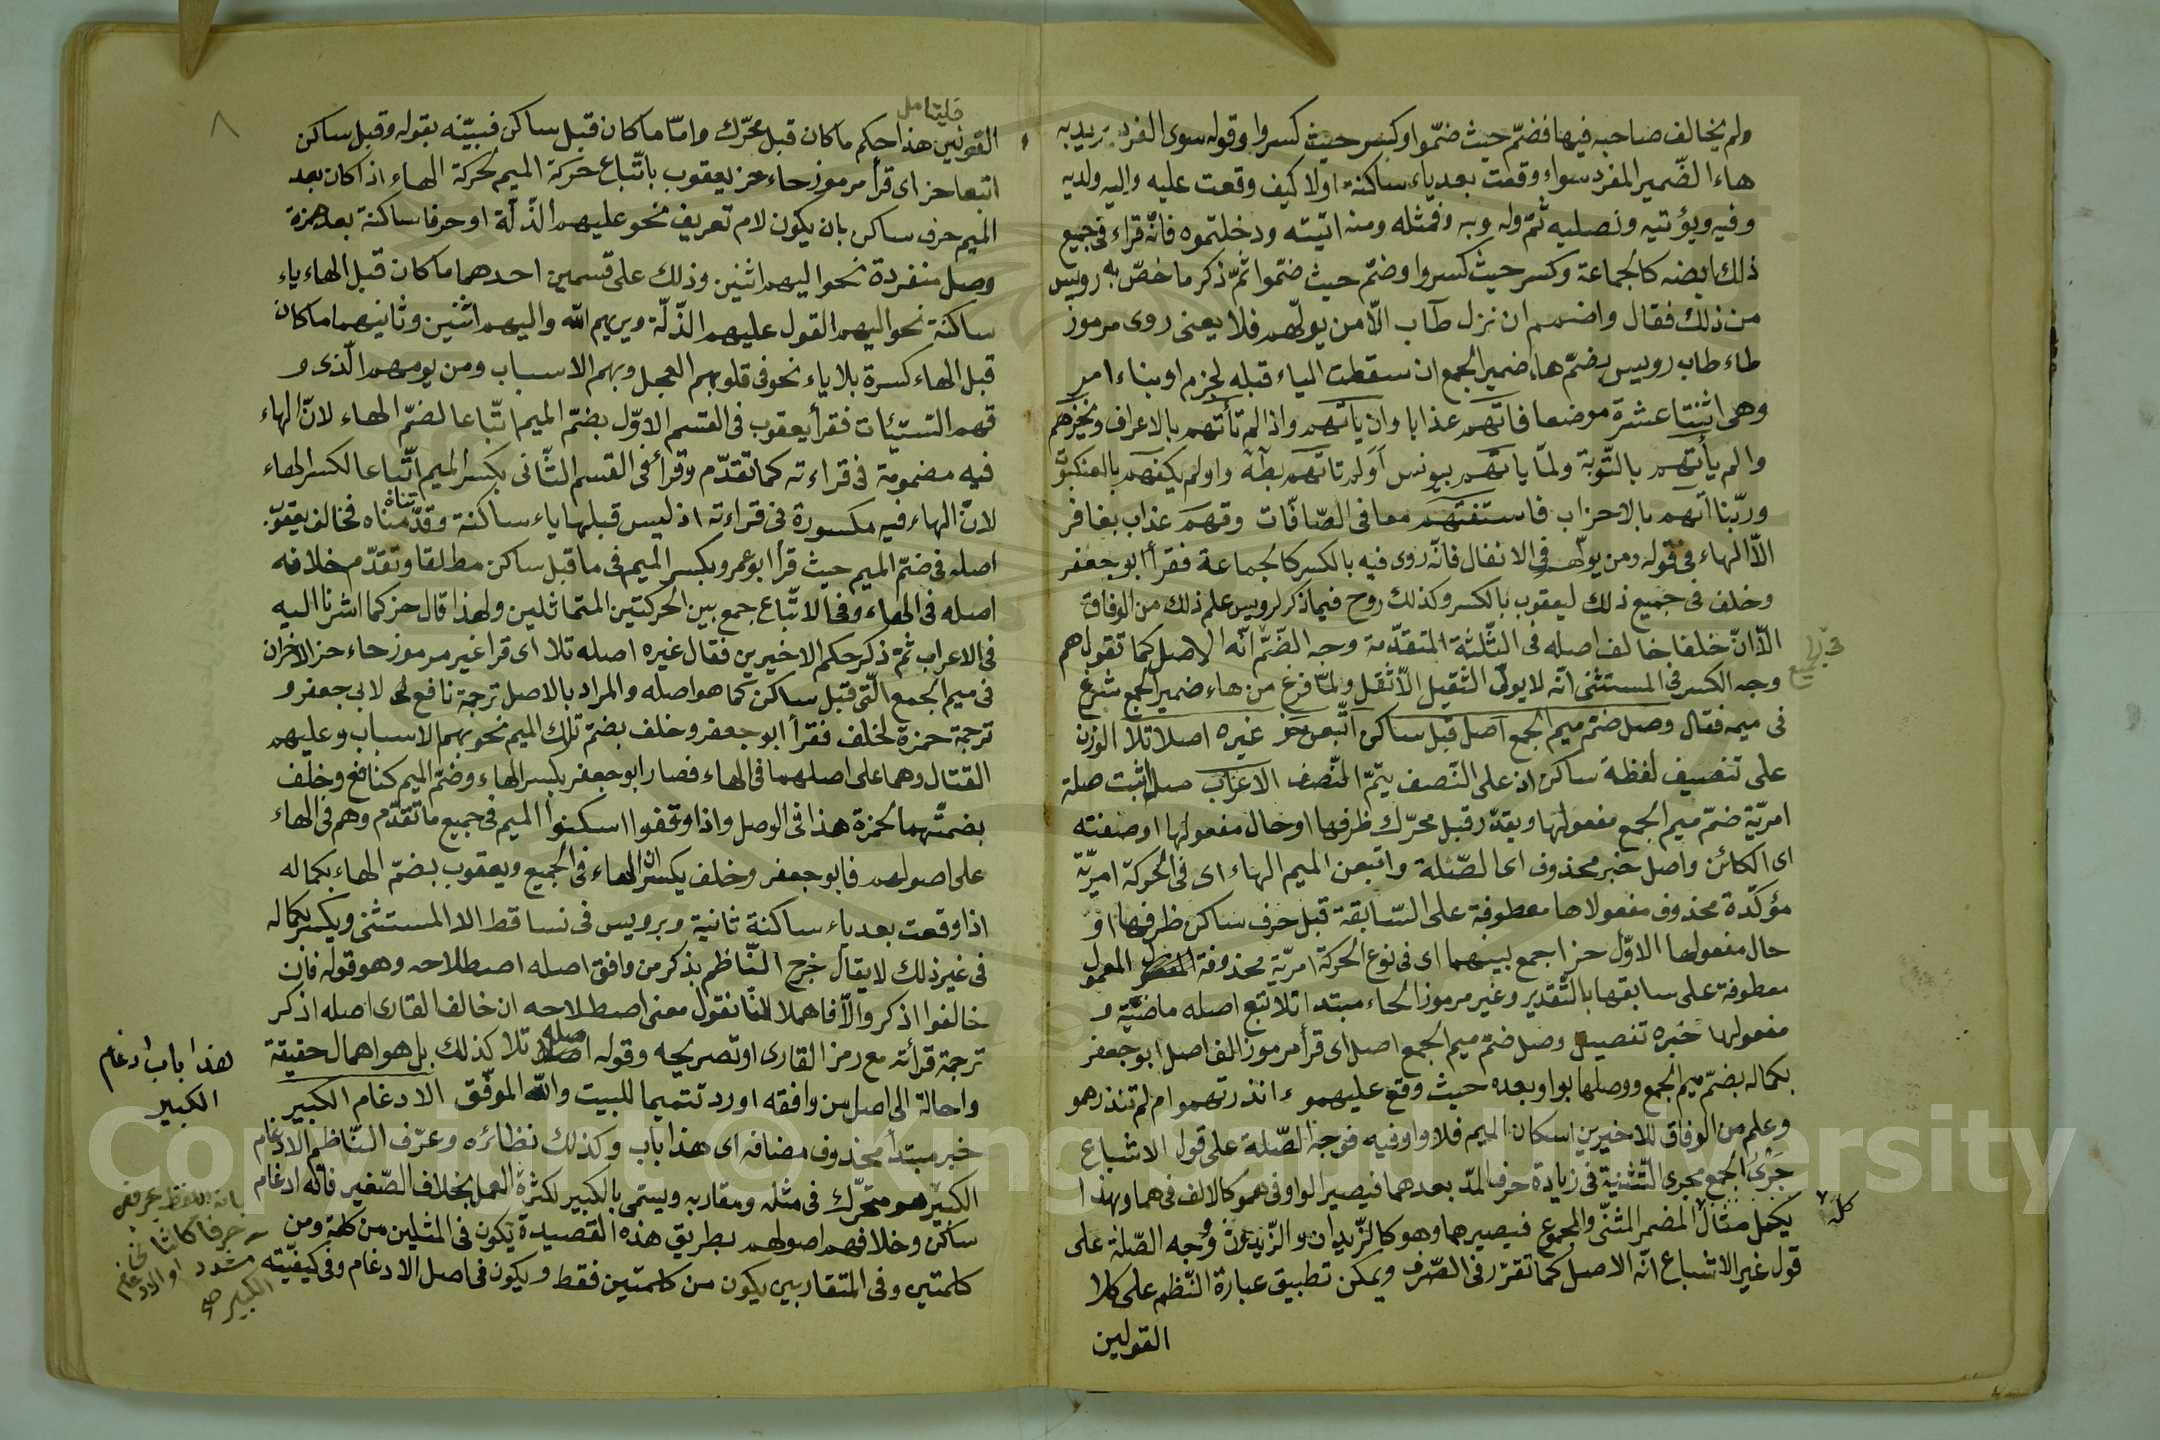 ولم يخالف صاحبه فيها فضمّ حيث ضمّوا وكسر حيث كسروا وقوله سوى الفرد يريد به
هاء الضّمير المفرد سواء وقعت بعد ياء ساكنة اولا كيف وقعت عليه واليه ولديه
وفيه ويؤتيه ونصليه ثمّ وله وبه ومثله ومنه اتيته ودخلتموه فانّه قراء فى جميع
ذلك ايضه كالجماعة وكسر حيث كسروا وضمّ حيث ضمّوا ثمّ ذكر ما خصّ به رويس
من ذلك فقال واضمم ان نزل طآب الّا من يولّهم فلا يعنى روى مرموز
طاء طاب رويس بضمّ هاء ضمير الجمع ان سقطت الياء قبله لجزم او بناء امر
وهى اثنتا عشرة موضعا فاتهم عذابا وان ياتهم واذا لم تأتهم بالاعراف ويخزهم
والم يأتهم بالتّوبة ولمّا ياتهم بيونس اَوَلم تاتهم بطه اولم يكفهم بالعنكبوت
وربّنا آتهم بالاحزاب فاستفتهم معا فى الصّافّات وقهم عذاب بغافر
الّا الهاء فى قوله ومن يولّهم فى الانفال فانّه روى فيه بالكسر كالجماعة فقرأ ابو جعفر
وخلف فى جميع ذلك ليعقوب بالكسر وكذلك روح فيما ذكر لرويس علم ذلك من الوفاق
الّا انّ خلفا خالف اصله فى الثّلثة المتقدّمة وجه الضّمّ انّه الاصل كما تقول هم
وجه الكسر فى المستثنى انّه لا يولى الثقيل الّا ثقل ولمّا فرغ من هاء ضمير الجمع شرع
فى ميمه فقال وصل ضمّ ميم الجمع اصل قبل ساكن اتّبعن حز غيره اصلا تلا الوزن
على تنصيف لفظة ساكن اذ على النّصف يتمّ النّصف الاعراب صل اثبت صلة
امريّة ضمّ ميم الجمع مفعولها ويقدّر قبل محرّك ظرفها او حال مفعولها او صفته
اى الكائن واصل خبر محذوف اى الصّلة واتبعن الميم الهاء اى فى الحركة امريّة
مؤكّدة محذوف مفعولاها معطوفة على السّابقة قبل حرف ساكن ظرفها او
حال مفعولها الاوّل حز اجمع بينهما اى فى نوع الحركة امريّة محذوفة المعمول
معطوفة على سابقها بالتّقدير وغير مرموز الحاء مبتدا تلا تبع اصله ماضيّة و
مفعولها خبره تفصيل وصل ضمّ ميم الجمع اصل اى قرأ مرموز الف اصل ابو جعفر
بكماله بضمّ ميم الجمع ووصلها بواو بعده حيث وقع عليهمو ءانذرتهمو ام لم تنذرهمو
وعلم من الوفاق للاخيرين اسكان الميم فلا واو فيه فوجه الصّلة على قول الاشباع
جَرْىُ الجمع مجرى التّثنية فى زيادة حرف المدّ بعدهما فيصير الواو فى همو كالالف فى هما وبهذا
يكمل مثال المضمر المثنّى والمجموع فيصير هما وهمو كالزّيدان والزّيدون وجه الصّلة على
قول غير الاشباع انّه الاصل كما تقرّر فى الصّرف ويمكن تطبيق عبارة النّظم على كلا
القولين
فليتامل
القولين هذا حكم ما كان قبل محرّك وامّا ما كان قبل ساكن فبيّنه بقوله وقبل ساكن
اتبعا حز اى قرأ مرموز حاء حز يعقوب باتّباع حركة الميم لحركة الهاء اذا كان بعد
الميم حرف ساكن بان يكون لام تعريف نحو عليهم الذّلّة او حرفا ساكنة بعد همزة
وصل منفردة نحو اليهم اثنين وذلك على قسمين احدهما ما كان قبل الهاء ياء
ساكنة نحو اليهم القول عليهم الذّلّة ويريهم اللّه واليهم اثنين وثانيهما ما كان
قبل الهاء كسرة بلا ياء نحو فى قلوبهم العجل وبهم الاسباب ومن يومهم الّذى و
قهم السّيّئات فقرأ يعقوب فى القسم الاوّل بضمّ الميم اتّباعا لضمّ الهاء لانّ الهاء
فيه مضمومة فى قراءته كما تقدّم وقرأ فى القسم الثّانى بكسر الميم اتّباعا لكسر الهاء
لانّ الهاء فيه مكسورة فى قراءته اذ ليس قبلها ياء ساكنة وقدّمناه فخالف يعقوب
اصله فى ضمّ الميم حيث قرأ ابو عمرو بكسر الميم فى ما قبل ساكن مطلقا وتقدّم خلافه
اصله فى الهاء وفى الاتّباع جمع بين الحركتين المتماثلين ولهذا قال حز كما اشرنا اليه
فى الاعراب ثمّ ذكر حكم الاخيرين فقال غيره اصله تلا اى قرا غير مرموز حاء حز الاخران
فى ميم الجمع الّتى قبل ساكن كما هو اصله والمراد بالاصل ترجمة نافع لابى جعفر و
ترجمة حمزة لخلف فقرأ ابو جعفر وخلف بضمّ تلك الميم نحو بهم الاسباب وعليهم
القتال وهما على اصلهما فى الهاء فصار ابو جعفر بكسر الهاء وضمّ الميم كنافع وخلف
بضمّهما لحمزة هذا فى الوصل واذا وقفوا اسكنوا الميم فى جميع ما تقدّم وهم فى الهاء
على اصولهم فابو جعفر وخلف يكسران الهاء فى الجميع ويعقوب بضمّ الهاء بكماله
اذا وقعت بعد ياء ساكنة ثانية وبرويس فى تساقط الا المستثنى ويكسر بكماله
فى غير ذلك لا يقال خرج النّاظم بذكر من وافق اصله اصطلاحه وهو قوله فان
خالفوا اذكر والّا فاهملا لانّا نقول معنى اصطلاحه ان خالف القارى اصله اذكر
ترجمة قرأته مع رمز القارى او تصريحه وقوله اصله تلا كذلك بل هو اهمال حقيقة
واحالة الى اصل من وافقه اورد تتميما للبيت واللّه الموفّق الادغام الكبير
خبر مبتدأ محذوف مضافه اى هذا باب وكذلك نظائره وعرّف النّاظم الادغام
الكبير هو متحرّك فى مثله ومقاربه ويسمّى بالكبير لكثرة العمل بخلاف الصّغير فانّه ادغام
ساكن وخلافهم اصولهم بطريق هذه القصيدة يكون فى المثلين من كلمة ومن
كلمتين وفى المتقاربين يكون من كلمتين فقط ويكون فى اصل الادغام وفى كيفيّته
هذا باب ادغام
الكبير